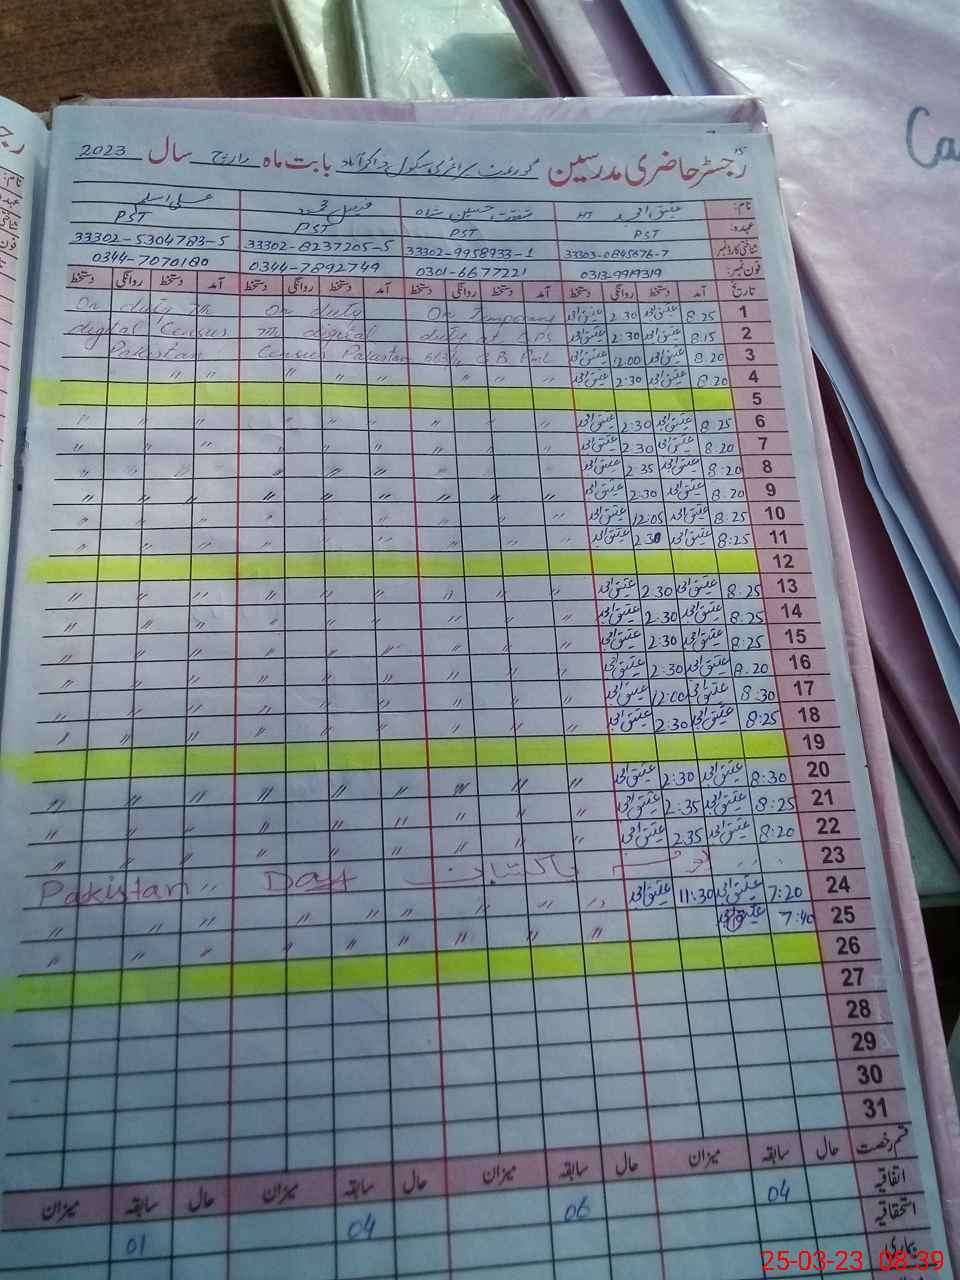 رجسٹر حاضری مدرسین گورنمنٹ پرائمری سکول ذاکر آباد بابت ماہ مارچ سال 2023
15
نام: عتیق احمد HT شفقت حسین شاہ فیصل محمد علی اسلم
عہدہ: PST PST PST PST
شناختی کارڈ نمبر 33303-0845676-7 33302-9958933-1 33302-8237205-5 33302-5304783-5
فون نمبر: 0313-9919319 0301-6677221 0344-7892749 0344-7070180
تاریخ آمد دستخط روانگی دستخط آمد دستخط روانگی دستخط آمد دستخط روانگی دستخط آمد دستخط روانگی دستخط
1 8:25 عتیق احمد 2:30 عتیق احمد On Temporary On duty On duty in
2 8:15 عتیق احمد 2:30 عتیق احمد duty at GPS in digital digital Census
3 8:20 عتیق احمد 12:00 عتیق احمد Census Pakistan Pakistan
4 8:20 عتیق احمد 2:30 عتیق احمد
5
6 8:25 عتیق احمد 2:30 عتیق احمد
7 8:20 عتیق احمد 2:30 عتیق احمد
8 8:20 عتیق احمد 2:35 عتیق احمد
9 8:20 عتیق احمد 2:30 عتیق احمد
10 8:25 عتیق احمد 12:05 عتیق احمد
11 8:25 عتیق احمد 2:30 عتیق احمد
12
13 8:25 عتیق احمد 2:30 عتیق احمد
14 8:25 عتیق احمد 2:30 عتیق احمد
15 8:25 عتیق احمد 2:30 عتیق احمد
16 8:20 عتیق احمد 2:30 عتیق احمد
17 8:30 عتیق احمد 12:00 عتیق احمد
18 8:25 عتیق احمد 2:30 عتیق احمد
19
20 8:30 عتیق احمد 2:30 عتیق احمد
21 8:25 عتیق احمد 2:35 عتیق احمد
22 8:20 عتیق احمد 2:35 عتیق احمد
23 یوم پاکستان Pakistan Day
24 7:20 عتیق احمد 11:30 عتیق احمد
25 7:40 عتیق احمد
26
27
28
29
30
31
قسم رخصت حال سابقہ میزان حال سابقہ میزان حال سابقہ میزان حال سابقہ میزان
اتفاقیہ 04 06 04 01
استحقاقیہ
بیماری
Ca
25-03-23 08:39